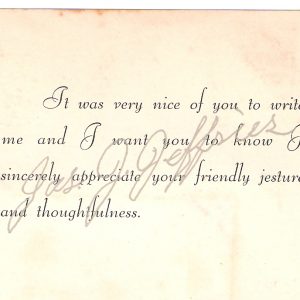 It was very nice of you to write
me and I want you to know I
sincerely appreciate your friendly jesture
and thoughtfulness.
Jas. J. Jeffries